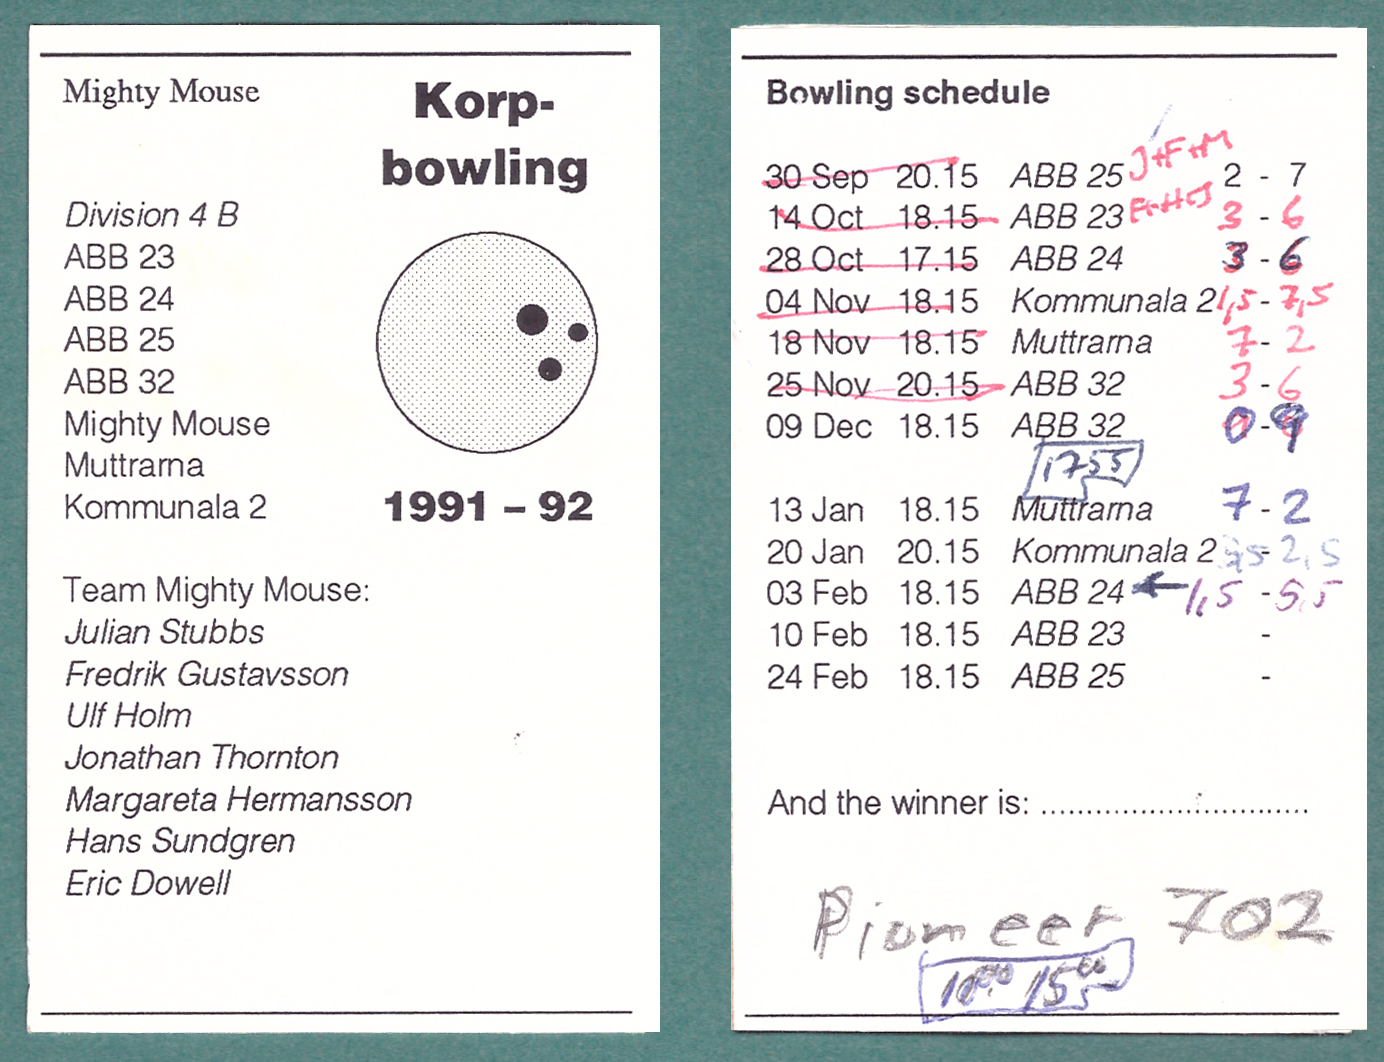 Mighty Mouse
Korp-
bowling
Division 4 B
ABB 23
ABB 24
ABB 25
ABB 32
Mighty Mouse
Muttrarna
Kommunala 2
1991 – 92
Team Mighty Mouse:
Julian Stubbs
Fredrik Gustavsson
Ulf Holm
Jonathan Thornton
Margareta Hermansson
Hans Sundgren
Eric Dowell
Bowling schedule
30 Sep 20.15 ABB 25 J+F+M 2 - 7
14 Oct 18.15 ABB 23 3 - 6
28 Oct 17.15 ABB 24 3 - 6
04 Nov 18.15 Kommunala 2 1,5 - 7,5
18 Nov 18.15 Muttrarna 7 - 2
25 Nov 20.15 ABB 32 3 - 6
09 Dec 18.15 ABB 32 0 - 9
1755
13 Jan 18.15 Muttrarna 7 - 2
20 Jan 20.15 Kommunala 2 - 2,5
03 Feb 18.15 ABB 24 ← 1,5 - 5,5
10 Feb 18.15 ABB 23 -
24 Feb 18.15 ABB 25 -
And the winner is: ..............................
Pioneer 702